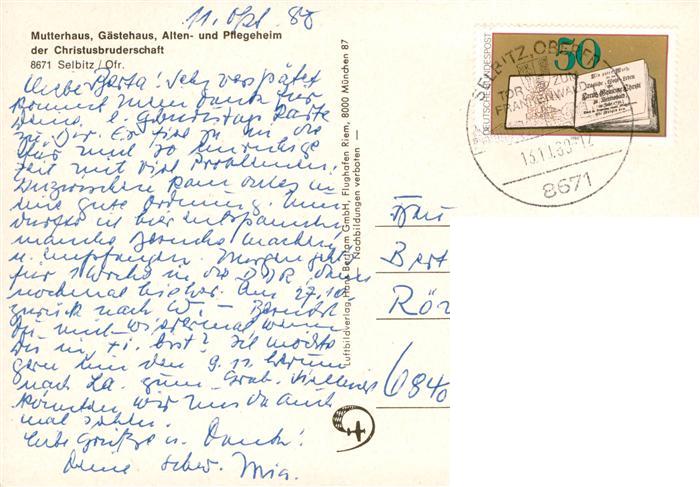 11. Okt 80
Mutterhaus, Gästehaus, Alten- und Pflegeheim
der Christusbruderschaft
8671 Selbitz/Ofr.
Liebe Berta! Sehr verspätet
kommt mein Dank für
Deine l. Geburtstags Karte
zu Dir. Es in die
und so unruhige
Zeit mit viel Problemen.
Inzwischen kam alles in
eine gute Ordnung. Nun
durfte ich hier entspannen,
manche Besuche machen
u. empfangen. Morgen geht's
für 1 Woche in die DDR, dann
nochmal hierher. Am 27.10.
zurück nach W. –
Du mich wissen lassen wann
Du in bist? Ich möchte
gern um den 9. 11. herum
nach La. zum Grab. Vielleicht
könnten wir uns da auch
mal sehen.
Liebe Grüße u. Dank!
Deine Schw. Mia.
Luftbildverlag Hans Bertram GmbH, Flughafen Riem, 8000 München 87
— Nachbildungen verboten —
DEUTSCHE BUNDESPOST
50
SELBITZ, OBERFR
TOR ZUM
FRANKENWALD
13.10.80-12
8671
Frau
Bert
Rör
6840